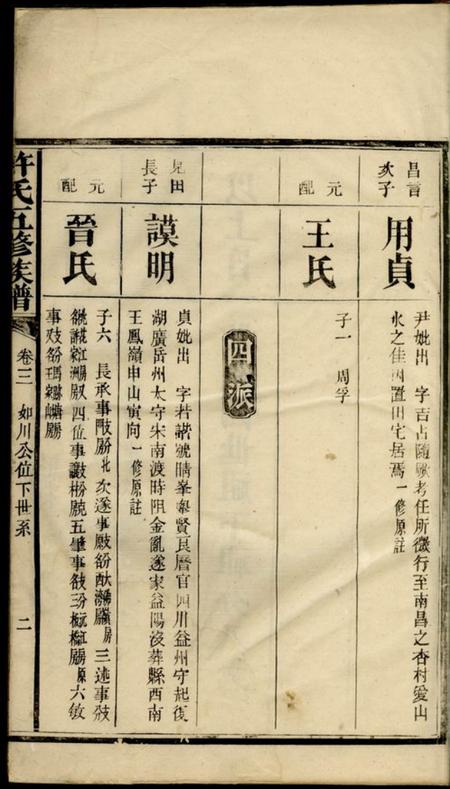 昌言
次子
用貞
尹妣出 字吉占隨顯考任所微行至南昌之杏村愛山
水之佳因置田宅居焉一修原註
元
配
王氏
子一 周孚
四派
見田
長子
謨明
貞妣出 字若諧號晴峯舉賢良曆官四川益州守起復
湖廣岳州太守宋南渡時阻金亂遂家益陽沒葬縣西南
王鳳嶺申山寅向一修原註
元
配
晉氏
子六 長承事 次遂事 三述事
四位事 五肇事 六敏
事
許氏五修族譜
卷三 如川公位下世系 二